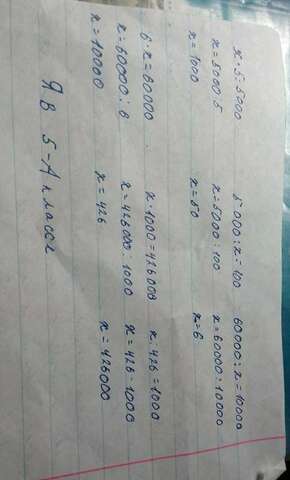 x·5=5000 5000:x=100 60000:x=10000
x=5000:5 x=5000:100 x=60000:10000
x=1000 x=50 x=6
6·x=60000 x·1000=426000 x:426=1000
x=60000:6 x=426000:1000 x=426·1000
x=10000 x=426 x=426000
Я в 5-А классе